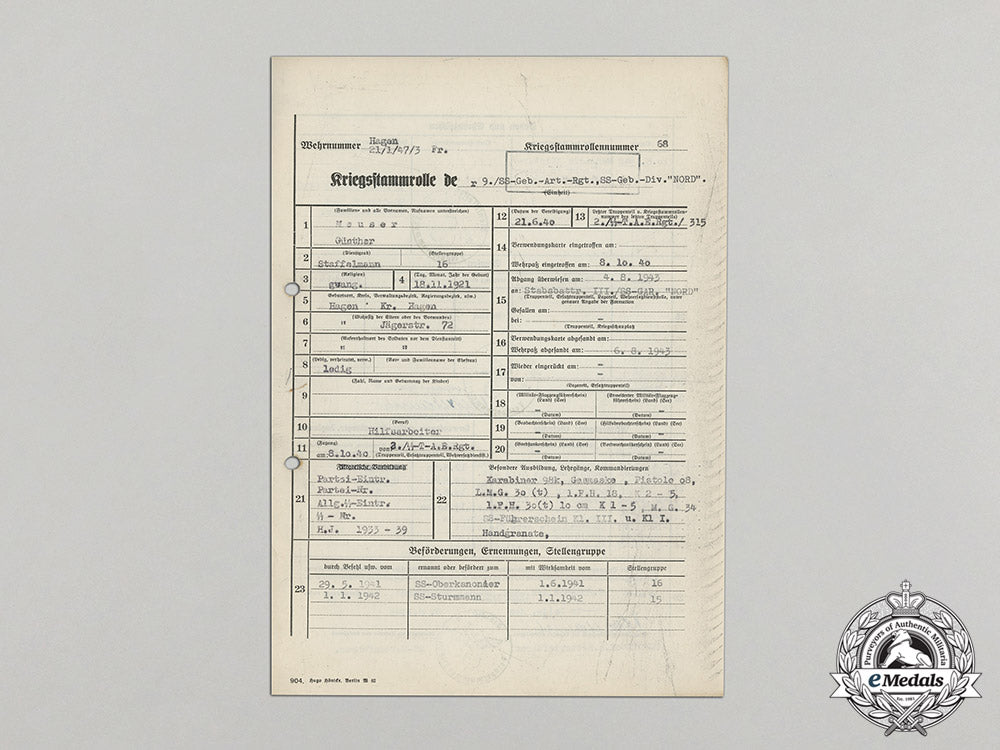 Wehrnummer Hagen 21/1/47/3 Fr.
Kriegsstammrollennummer 68
Kriegsstammrolle de r 9./SS-Geb.-Art.-Rgt.,SS-Geb.-Div."NORD".
(Einheit)
1 (Familien- und alle Vornamen, Rufnamen unterstreichen)
Meuser
Günther
2 (Dienstgrad) (Stellengruppe)
Staffelmann 16
3 (Religion) 4 (Tag, Monat, Jahr der Geburt)
gvang. 18.11.1921
5 (Geburtsort, Kreis, Verwaltungsbezirk, Regierungsbezirk, usw.)
Hagen Kr. Hagen
6 (Wohnsitz der Eltern oder des Vormundes)
" Jägerstr. 72
7 (Aufenthaltsort des Soldaten vor dem Diensteintritt)
" "
8 (ledig, verheiratet, verw.) (Vor- und Familienname der Ehefrau)
ledig
9 (Zahl, Name und Geburtstag der Kinder)
10 (Beruf)
Hilfsarbeiter
11 (Zugang)
am: 8.10.40 von 2./ᛋᛋ-T-A.E.Rgt.
(Truppenteil, Ersatztruppenteil, Wehrersatzdienststelle)
12 (Datum der Vereidigung)
21.6.40
13 Letzter Truppenteil u. Kriegsstammrollennummer des letzten Truppenteils)
2./ᛋᛋ-T.A.E.Rgt./ 315
14 Verwendungskarte eingetroffen am:
Wehrpaß eingetroffen am: 8.10.40
15 Abgang überwiesen am: 4.8.1943
an: Stabsbattr. III./SS-GAR. "NORD"
(Truppenteil, Ersatztruppenteil, Lazarett, Wehrersatzdienststelle, unter genauer Angabe der Formation
Gefallen am: –
bei: –
(Truppenteil, Kriegsschauplatz)
16 Verwendungskarte abgesandt am:
Wehrpaß abgesandt am: 6.8.1943
17 Wieder eingerückt am: –
von: –
(Lazarett, Ersatztruppenteil)
18 (Militär-Flugzeugführerschein) (Land) (See) (Erweiterter Militär-Flugzeugführerschein) (Land) (See)
– –
(Datum) (Datum)
19 (Beobachterschein) (Land) (See) (Hilfsbeobachterschein) (Land) (See)
– –
(Datum) (Datum)
20 (Land) (See) (Land) (See)
– –
(Datum) (Datum)
21
Partei-Eintr.
Partei-Nr.
Allg.ᛋᛋ-Eintr.
ᛋᛋ - Nr.
H.J. 1933 - 39
22 Besondere Ausbildung, Lehrgänge, Kommandierungen
Karabiner 98k, Gasmaske, Pistole 08,
L.M.G. 30 (t), l.F.H. 18, K 2 - 5,
l.F.H. 30(t) 10 cm K 1 - 5, M.G. 34
SS-Führerschein Kl. III. u. Kl I.
Handgranate,
23 Beförderungen, Ernennungen, Stellengruppe
durch Befehl usw. vom ernannt oder befördert zum mit Wirksamkeit vom Stellengruppe
29. 5. 1941 SS-Oberkanonier 1.6.1941 16
1. 1. 1942 SS-Sturmmann 1.1.1942 15
904. Hugo Hönicke, Berlin
Purveyors of Authentic Militaria
eMedals
Est. 1985